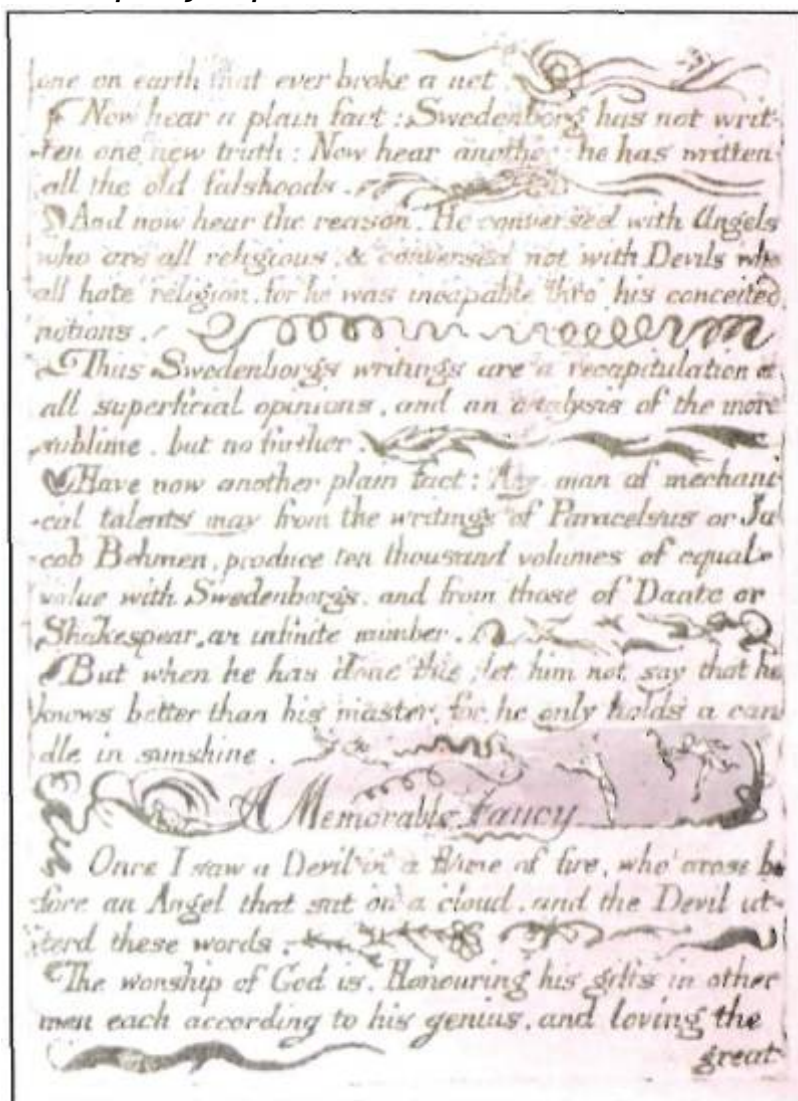 one on earth that ever broke a net.
Now hear a plain fact: Swedenborg has not writ-
-ten one new truth: Now hear another: he has written
all the old falshoods.
And now hear the reason. He conversed with Angels
who are all religious, & conversed not with Devils who
all hate religion, for he was incapable thro' his conceited
notions.
Thus Swedenborgs writings are a recapitulation of
all superficial opinions, and an analysis of the more
sublime, but no further.
Have now another plain fact: Any man of mechani-
-cal talents may from the writings of Paracelsus or Ja-
-cob Behmen, produce ten thousand volumes of equal
value with Swedenborgs, and from those of Dante or
Shakespear, an infinite number.
But when he has done this, let him not say that he
knows better than his master, for he only holds a can-
dle in sunshine.
A Memorable Fancy
Once I saw a Devil in a flame of fire, who arose be-
-fore an Angel that sat on a cloud, and the Devil ut-
-terd these words.
The worship of God is, Honouring his gifts in other
men each according to his genius, and loving the
great